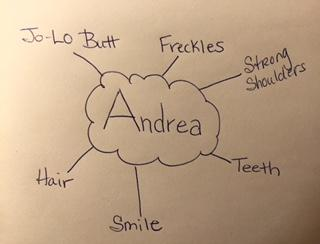 Jo-Lo Butt
Freckles
Strong
Shoulders
Andrea
Hair
Teeth
Smile